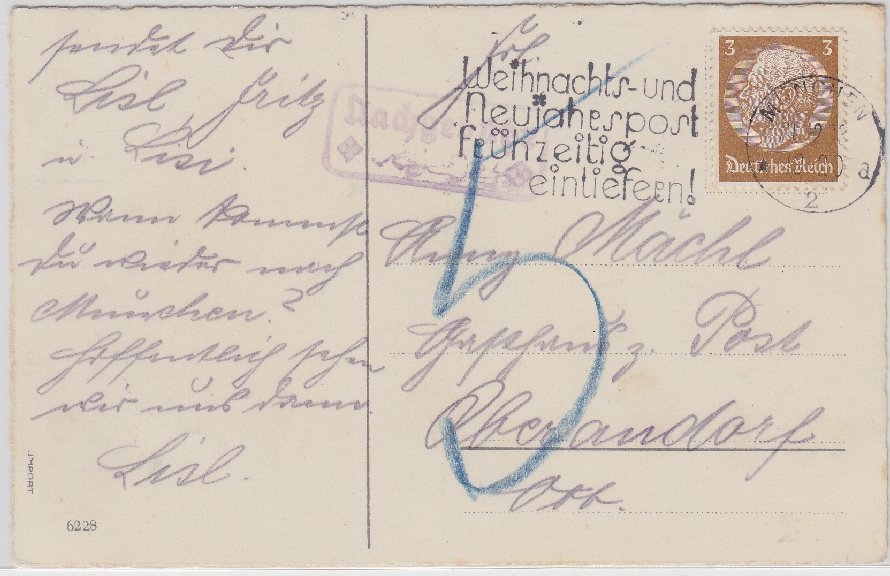 sendet dir
Lisl, Fritz
u. Lisi.
Wann kommst
du wieder nach
München?
Hoffentlich sehen
wir uns dann.
Lisl.
IMPORT
6228
Frl.
Weihnachts- und
Neujahrspost
frühzeitig
einliefern!
3 3
Deutsches Reich
MÜNCHEN
a
2
5
Mächl
Gasthaus z. Post
Oberaudorf
Obb.